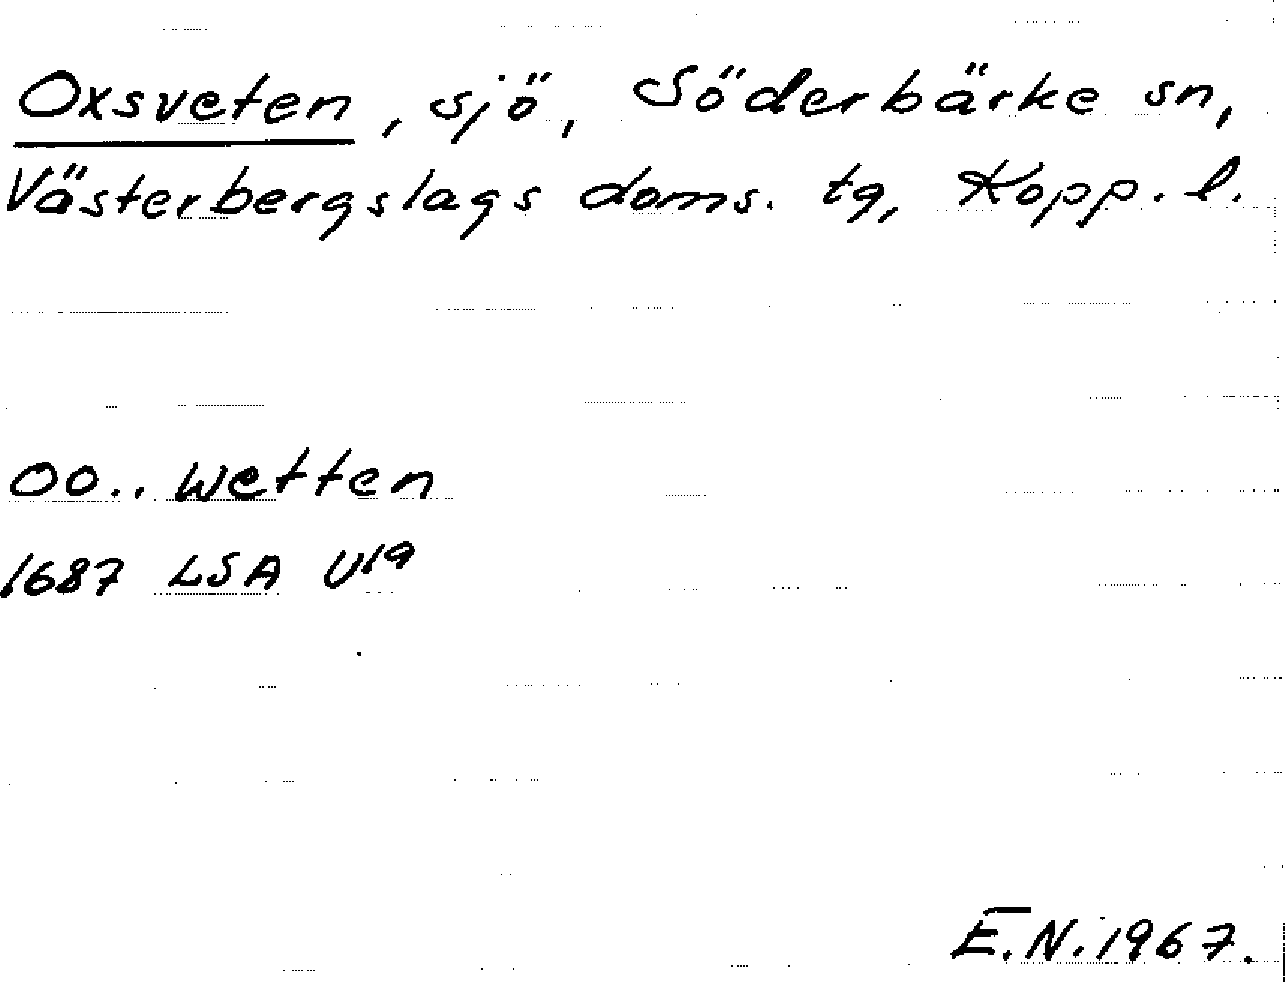 Oxsveten, sjö, Söderbärke sn,
Västerbergslags doms. tg, Kopp. l.
OO.. Wetten
1687 LSA U19
E.N. 1967.